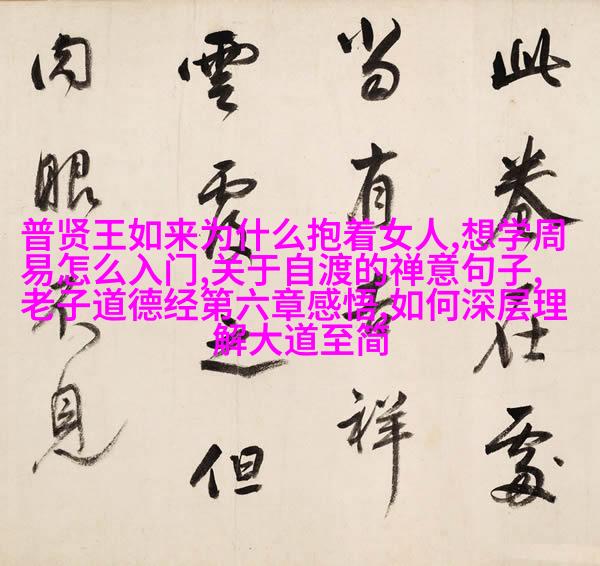 此卷在處
當有吉祥
雲覆之但
肉眼不見
普贤王如来为什么抱着女人,想学周
易怎么入门,关于自渡的禅意句子,
老子道德经第六章感悟,如何深层理
解大道至简